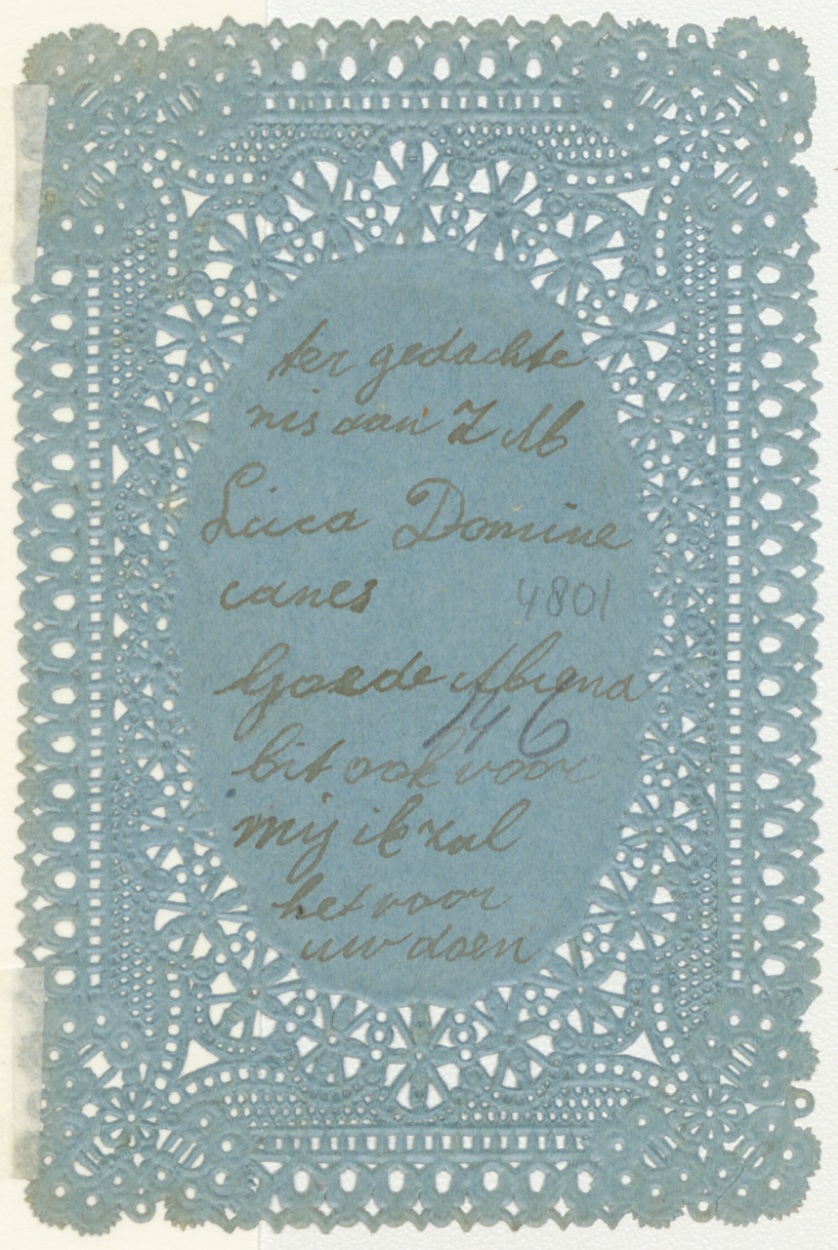 ter gedachte
nis aan Z M
Luca Domine
canes
4801
Goede Abrend
146
bit ook voor
mij ik zal
het voor
uw doen